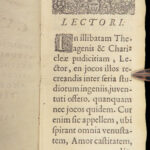 LECTORI.
En illibatam The-
agenis & Chari-
cleæ pudicitiam, Le-
ctor, en jocos illos re-
creandis inter seria stu-
diorum ingeniis, juven-
tuti ostero, quanquam
nec jocos quidem. Cur
enim sic appellem, ubi
spirant omnia venusta-
tem, Amor castitatem,